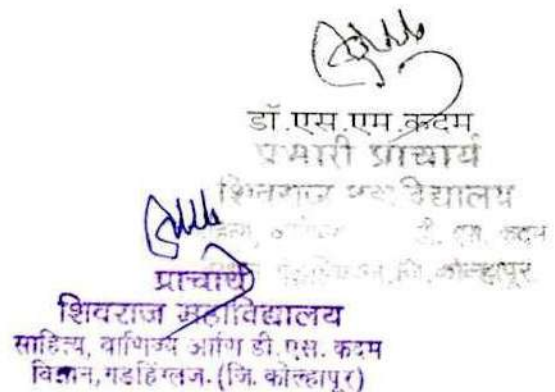 डॉ.एस.एम.कदम
प्रभारी प्राचार्य
शिवराज महाविद्यालय
डी. एस. कदम
जि. कोल्हापूर
प्राचार्य
शिवराज महाविद्यालय
साहित्य, वाणिज्य आणि डी.एस. कदम
विज्ञान, गडहिंग्लज. (जि. कोल्हापूर)